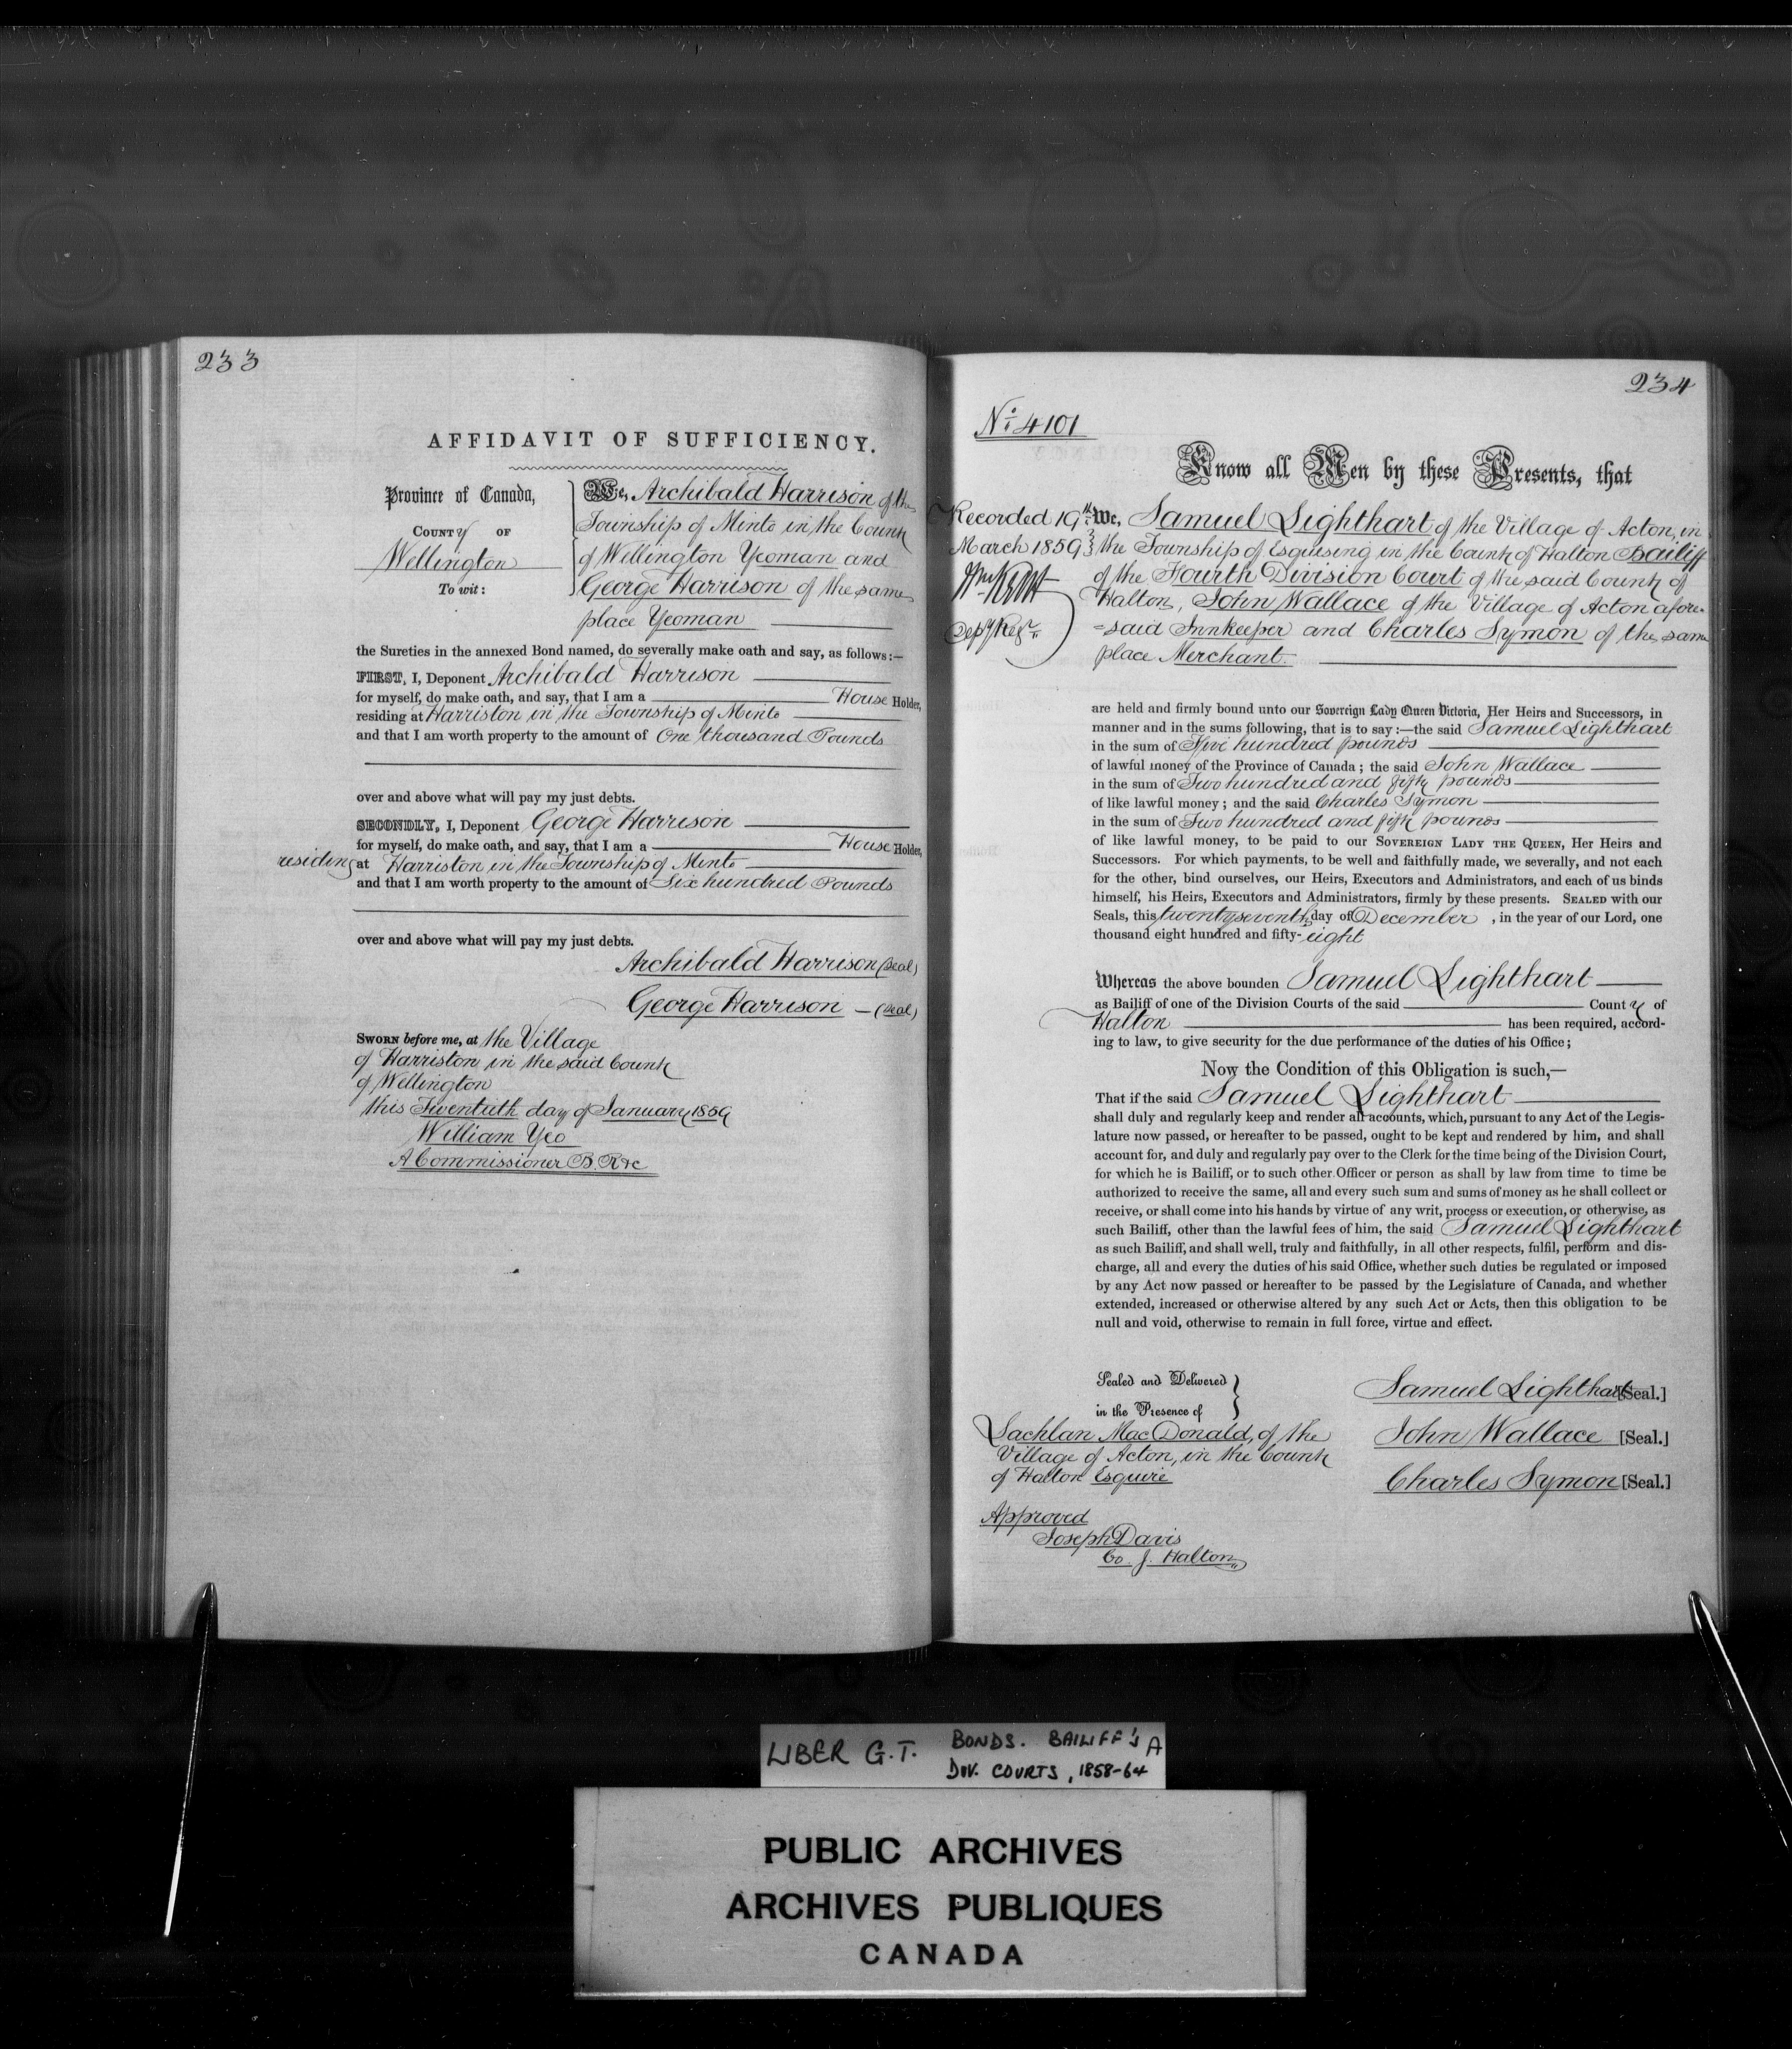 233
AFFIDAVIT OF SUFFICIENCY.
Province of Canada,
COUNTY OF
Wellington
To wit:
We, Archibald Harrison of the
Township of Minto in the County
of Wellington Yeoman and
George Harrison of the same
place Yeoman
the Sureties in the annexed Bond named, do severally make oath and say, as follows:—
FIRST, I, Deponent Archibald Harrison
for myself, do make oath, and say, that I am a House Holder,
residing at Harriston in the Township of Minto
and that I am worth property to the amount of One thousand Pounds
over and above what will pay my just debts.
SECONDLY, I, Deponent George Harrison
for myself, do make oath, and say, that I am a House Holder,
residing at Harriston in the Township of Minto
and that I am worth property to the amount of Six hundred Pounds
over and above what will pay my just debts.
Archibald Harrison (Seal)
George Harrison — (Seal)
SWORN before me, at the Village
of Harriston in the said County
of Wellington
this Twentieth day of January 1859
William Yeo
A Commissioner B. R &c
234
No. 4101
Know all Men by these Presents, that
Recorded 19th
March 1859
Depy Regr
We, Samuel Lighthart of the Village of Acton, in
the Township of Esquesing in the County of Halton Bailiff
of the Fourth Division Court of the said County of
Halton, John Wallace of the Village of Acton afore-
=said Innkeeper and Charles Symon of the same
place Merchant.
are held and firmly bound unto our Sovereign Lady Queen Victoria, Her Heirs and Successors, in
manner and in the sums following, that is to say:—the said Samuel Lighthart
in the sum of Five hundred pounds
of lawful money of the Province of Canada; the said John Wallace
in the sum of Two hundred and fifty pounds
of like lawful money; and the said Charles Symon
in the sum of Two hundred and fifty pounds
of like lawful money, to be paid to our SOVEREIGN LADY THE QUEEN, Her Heirs and
Successors. For which payments, to be well and faithfully made, we severally, and not each
for the other, bind ourselves, our Heirs, Executors and Administrators, and each of us binds
himself, his Heirs, Executors and Administrators, firmly by these presents. SEALED with our
Seals, this twenty seventh day of December , in the year of our Lord, one
thousand eight hundred and fifty-eight
Whereas the above bounden Samuel Lighthart
as Bailiff of one of the Division Courts of the said County of
Halton has been required, accord-
ing to law, to give security for the due performance of the duties of his Office;
Now the Condition of this Obligation is such,—
That if the said Samuel Lighthart
shall duly and regularly keep and render all accounts, which, pursuant to any Act of the Legis-
lature now passed, or hereafter to be passed, ought to be kept and rendered by him, and shall
account for, and duly and regularly pay over to the Clerk for the time being of the Division Court,
for which he is Bailiff, or to such other Officer or person as shall by law from time to time be
authorized to receive the same, all and every such sum and sums of money as he shall collect or
receive, or shall come into his hands by virtue of any writ, process or execution, or otherwise, as
such Bailiff, other than the lawful fees of him, the said Samuel Lighthart
as such Bailiff, and shall well, truly and faithfully, in all other respects, fulfil, perform and dis-
charge, all and every the duties of his said Office, whether such duties be regulated or imposed
by any Act now passed or hereafter to be passed by the Legislature of Canada, and whether
extended, increased or otherwise altered by any such Act or Acts, then this obligation to be
null and void, otherwise to remain in full force, virtue and effect.
Sealed and Delivered
in the Presence of
Lachlan MacDonald, of the
Village of Acton, in the County
of Halton Esquire
Samuel Lighthart [Seal.]
John Wallace [Seal.]
Charles Symon [Seal.]
Approved
Joseph Davis
Co. J. Halton
LIBER G.T. BONDS. BAILIFF'S A
DIV. COURTS, 1858-64
PUBLIC ARCHIVES
ARCHIVES PUBLIQUES
CANADA